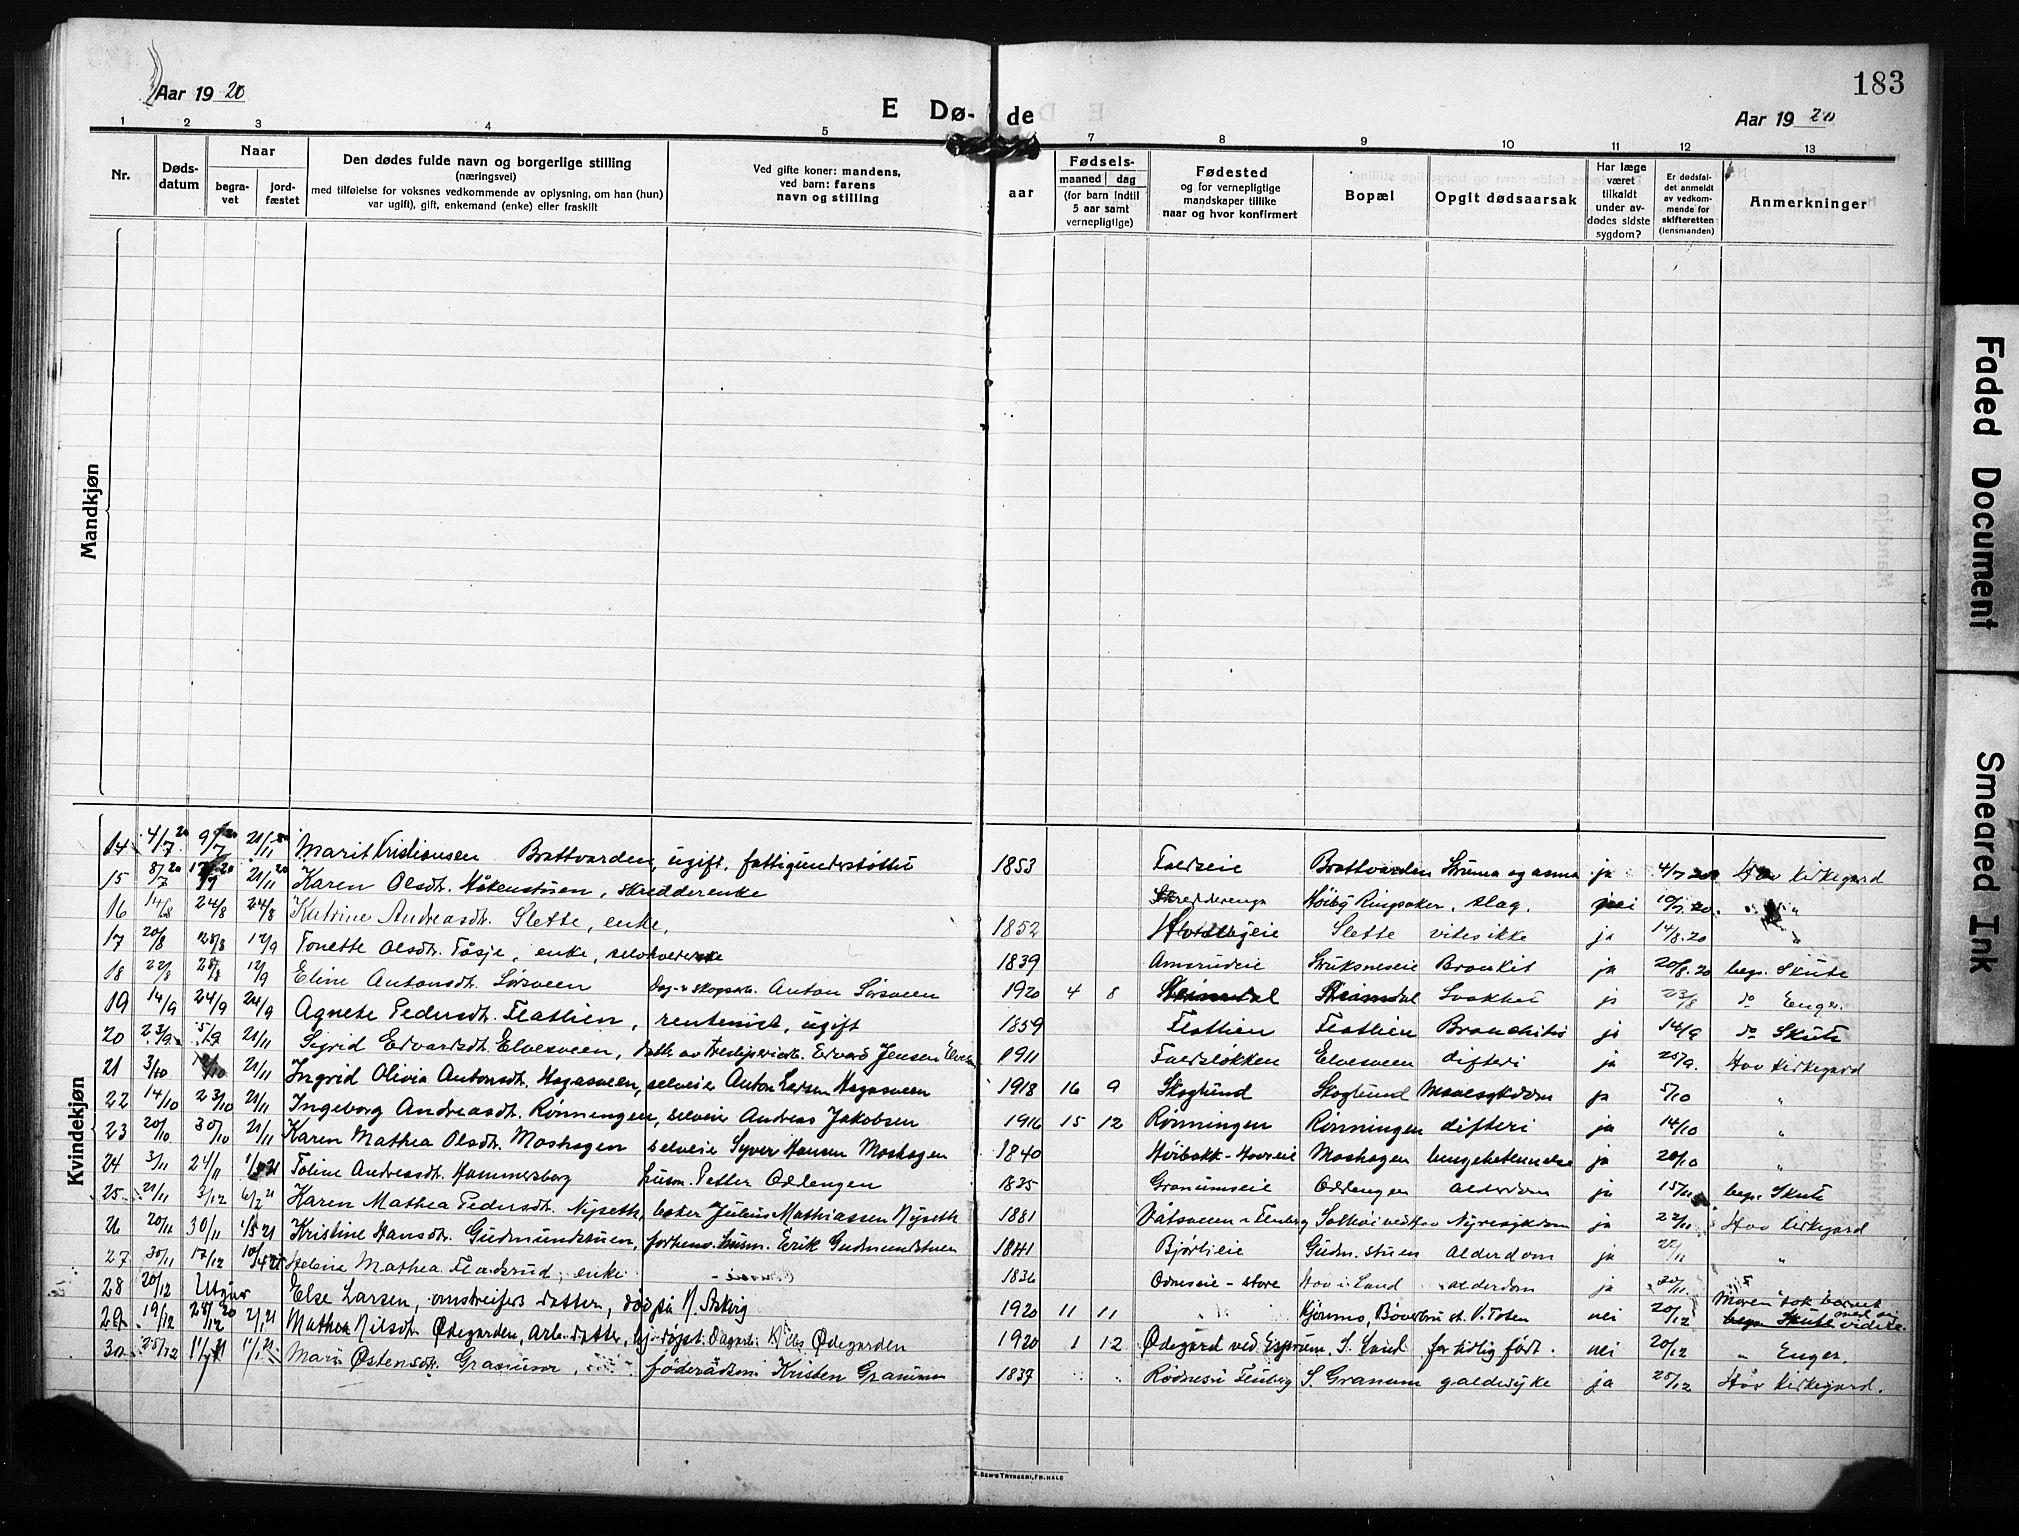 183
Aar 19 20
E Dø- de
Aar 19 20
1 2 3 4 5 7 8 9 10 11 12 13
Nr.
Døds-
datum
Naar
begra-
vet
jord-
fæstet
Den dødes fulde navn og borgerlige stilling
(næringsvei)
med tilføielse for voksnes vedkommende av oplysning, om han (hun)
var ugift), gift, enkemand (enke) eller fraskilt
Ved gifte koner: mandens,
ved barn: farens
navn og stilling
aar
Fødsels-
maaned dag
(for barn indtil
5 aar samt
vernepligtige)
Fødested
og for vernepligtige
mandskaper tillike
naar og hvor konfirmert
Bopæl
Opgit dødsaarsak
Har læge
været
tilkaldt
under av-
dødes sidste
sygdom?
Er dødsfal-
det anmeldt
av vedkom-
mende for
skifteretten
(lensmanden)
Anmerkninger
Mandkjøn
Kvindekjøn
14 4/7 20 9/7 20 21/11 Marit Kristiansen Brattvarden, ugift, fattigunderstøttet 1853 Brattvarden Struma og asma ja 4/7 20 Hov kirkegard
15 8/7 20 21/11 20 Karen Olsdt. Håkenstuen, skredderenke Høiby Ringsaker slag. 10/7 20
16 14/8 24/8 24/8 Katrine Andreasdt. Slette, enke. 1852 Slette vites ikke ja 14/8.20
17 20/8 28/8 12/9 Tonette Olsdt. Tåsje, enke, 1839 Amsrudeie Bronkit ja 20/8.20 begr. Skute
18 22/8 28/8 12/9 Eline Antonsdt. Sørsveen Anton Sørsveen 1920 4 8 23/8 do Enger.
19 14/9 24/9 24/9 Agnete Pedersdt. Flatlien, rentenist, ugift 1859 Flatlien Flatlien Bronchitis ja 14/9 do Skute
20 23/9 21/11 Sigrid Edvardsdt. Elvesveen, Edvard Jensen 1911 Faldsløkken Elvesveen difteri ja 25/9. Hov kirkegard
21 3/10 21/11 Ingrid Olivia Antonsdt. Hagasveen, selveier Anton Larsen Hagasveen 1918 16 9 Skoglund Skoglund ja 5/10 "
22 14/10 23/10 21/11 Ingeborg Andreasdt. Rønningen, selveier Andreas Jakobsen 1916 15 12 Rønningen Rønningen difteri ja 14/10 "
23 20/10 30/10 21/11 Karen Mathea Olsdt. Moshagen selveier Syver Hansen Moshagen 1840 Moshagen lungebetendelse ja 20/10 "
24 3/11 24/11 Toline Andreasdt. Hammersborg husm. Petter Odlangen 1835 Granumseie Odlangen Alderdom ja 15/11 begr. Skute
25 21/11 3/12 6/2 21 Karen Mathea Pedersdt. Nyseth, baker Julius Mathiassen Nyseth 1881 Nyresykdom ja 22/11 Hov kirkegard
26 20/11 30/11 1/5 21 Kristine Hansdt. Gudmundstuen, forhenv. husm. Erik Gudmundstuen 1841 Bjørlieie Gudm. stuen alderdom ja 22/11 "
27 30/11 17/12 Helene Mathea Fladsrud, enke 1836 Odneseie - store Hov i Land alderdom ja 30/11 "
28 20/12 Utgår Else Larsen, omstreifers datter, død på N. Askvig 1920 11 11 Kjørmo, Bøverbru st. V. Toten nei 20/12 Moren tok barnet med sig videre. begr. Skute
29 19/12 28/12 20 2/1 21 Mathea Nilsdt. Ødegården, Arb. datter, hj. døpt. Dagarb. Nils Ødegården 1920 1 12 Ødegård ved Espurum, S. Land for tidlig født. nei 20/12 " Enger.
30 25/12 11/1 21 Mari Østensdt. Granum, føderådsm. Kristen Granum 1837 S. Granum galdesyke ja 28/12 Hov kirkegard.
Faded Document
Smeared Ink